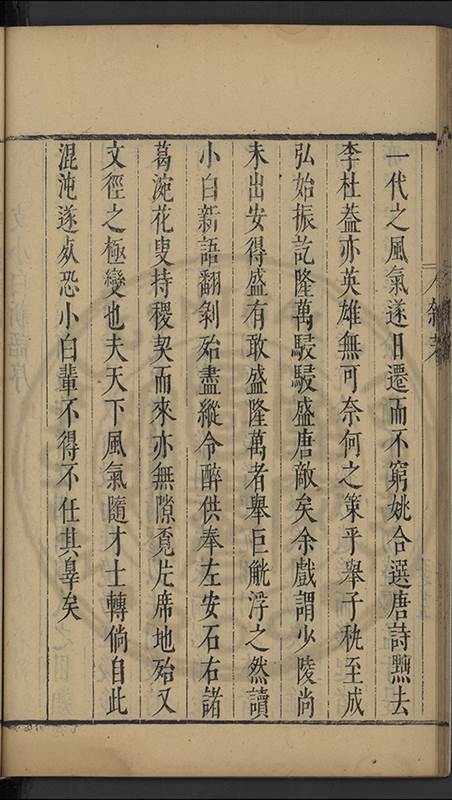 一代之風氣遂日遷而不窮姚合選唐詩黜去
李杜蓋亦英雄無可奈何之策乎舉子秇至成
弘始振訖隆萬駸駸盛唐敵矣余戲謂少陵尚
未出安得盛有敢盛隆萬者舉巨觥浮之然讀
小白新語翻剝殆盡縱令醉供奉左安石右諸
葛浣花叟持稷契而來亦無隙覔片席地殆又
文徑之極變也夫天下風氣隨才士轉倘自此
混沌遂死恐小白輩不得不任其辠矣